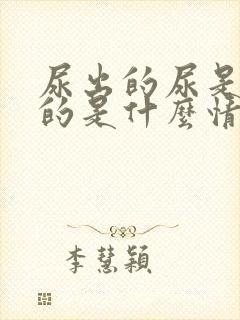 尿出的尿是
的是什麼情
李慧穎